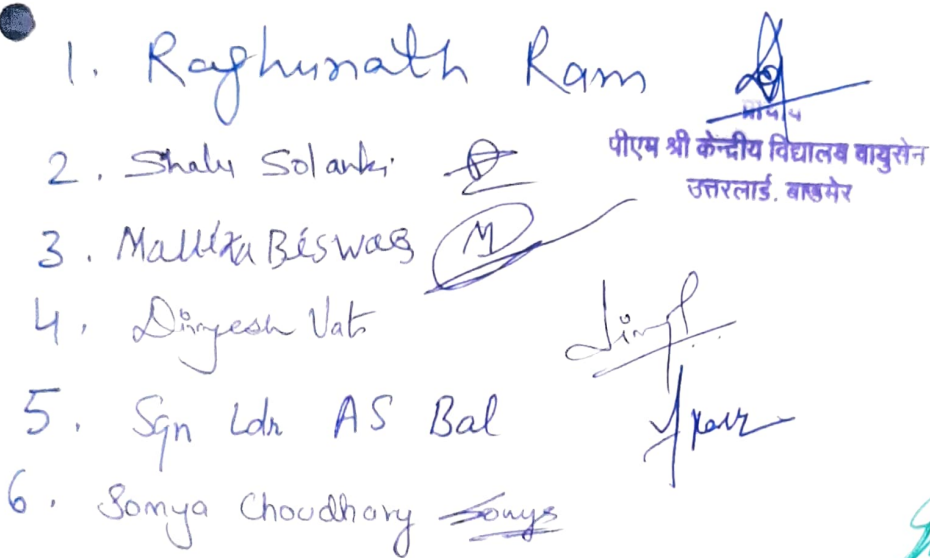 1. Raghunath Ram
प्राचार्य
पीएम श्री केन्द्रीय विद्यालय वायुसेन
उत्तरलाई, बाडमेर
2. Shalu Solanki
3. Mallika Biswas M
4. Divyesh Vats
5. Sqn Ldr AS Bal
6. Somya Choudhary